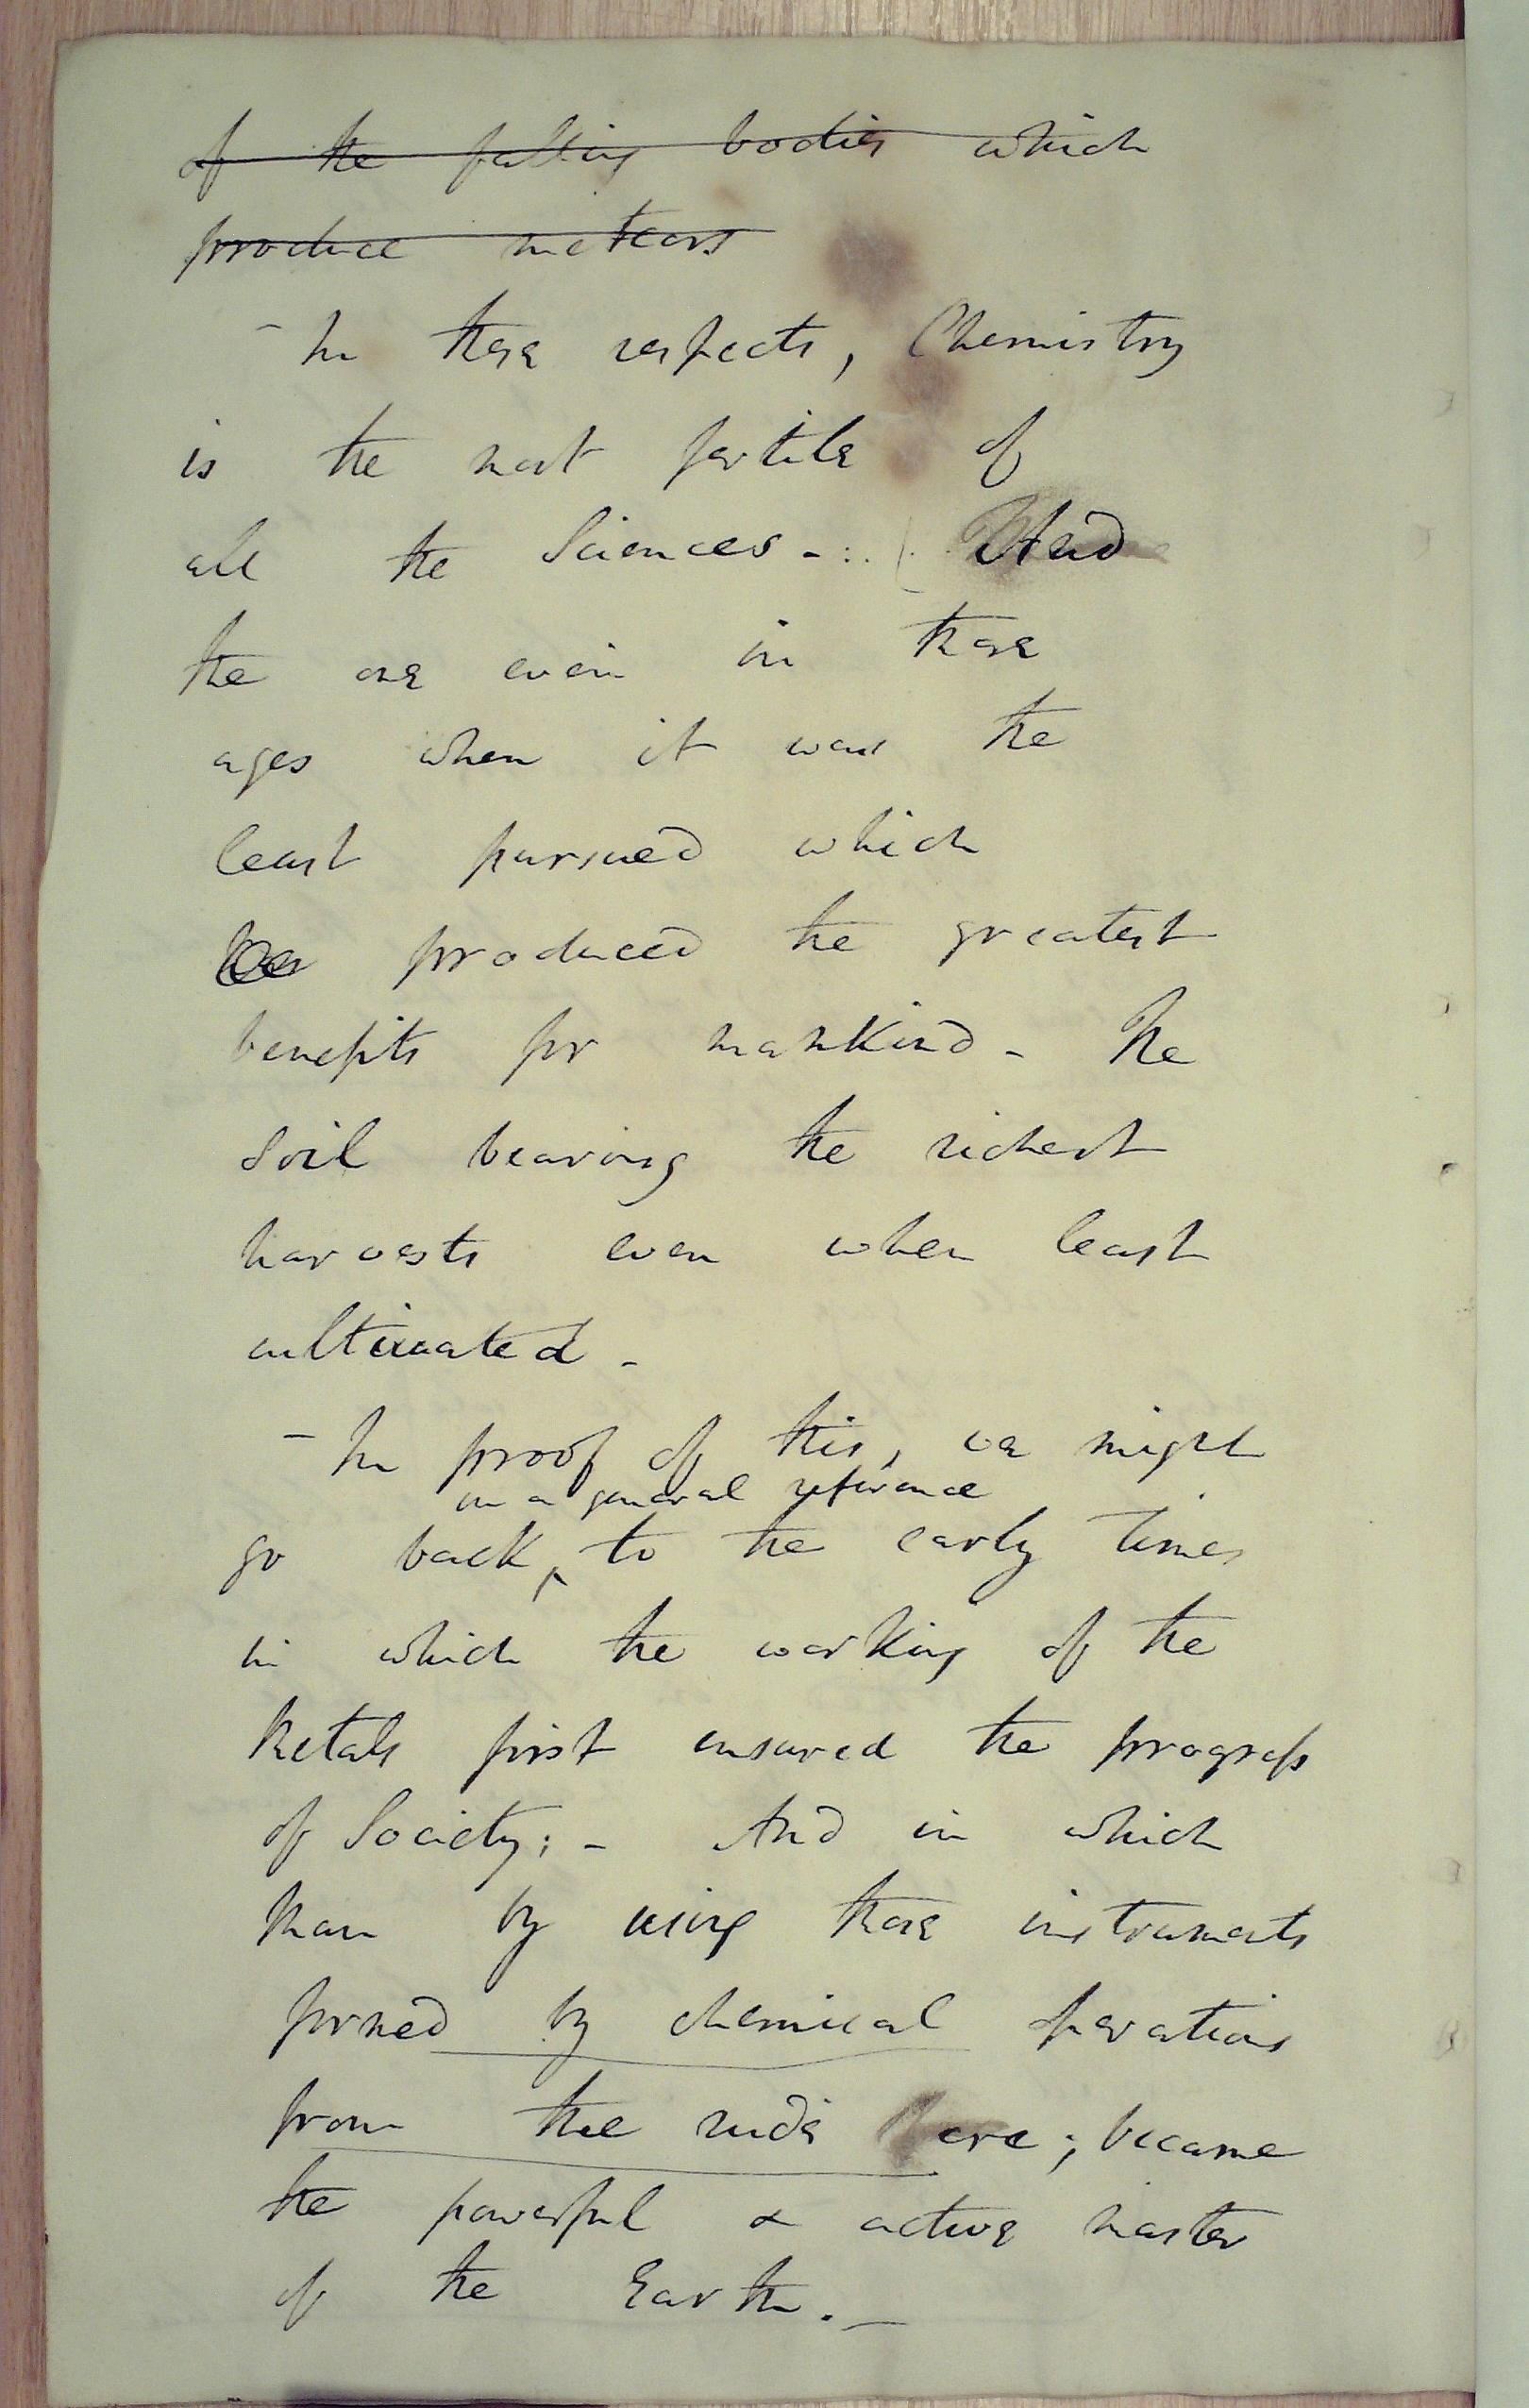 of the falling bodies which
produce meteors
- In these respects, Chemistry
is the most fertile of
all the Sciences -:. And
the one even in those
ages when it was the
least pursued which
produced the greatest
benefits for mankind - The
soil bearing the richest
harvests even when least
cultivated -
- In proof of this, we might
in a general reference
go back, to the early times
in which the working of the
Metals first ensured the progress
of Society; - And in which
Man by using those instruments
formed by chemical operations
from the rude ore; became
the powerful & active master
of the Earth. -